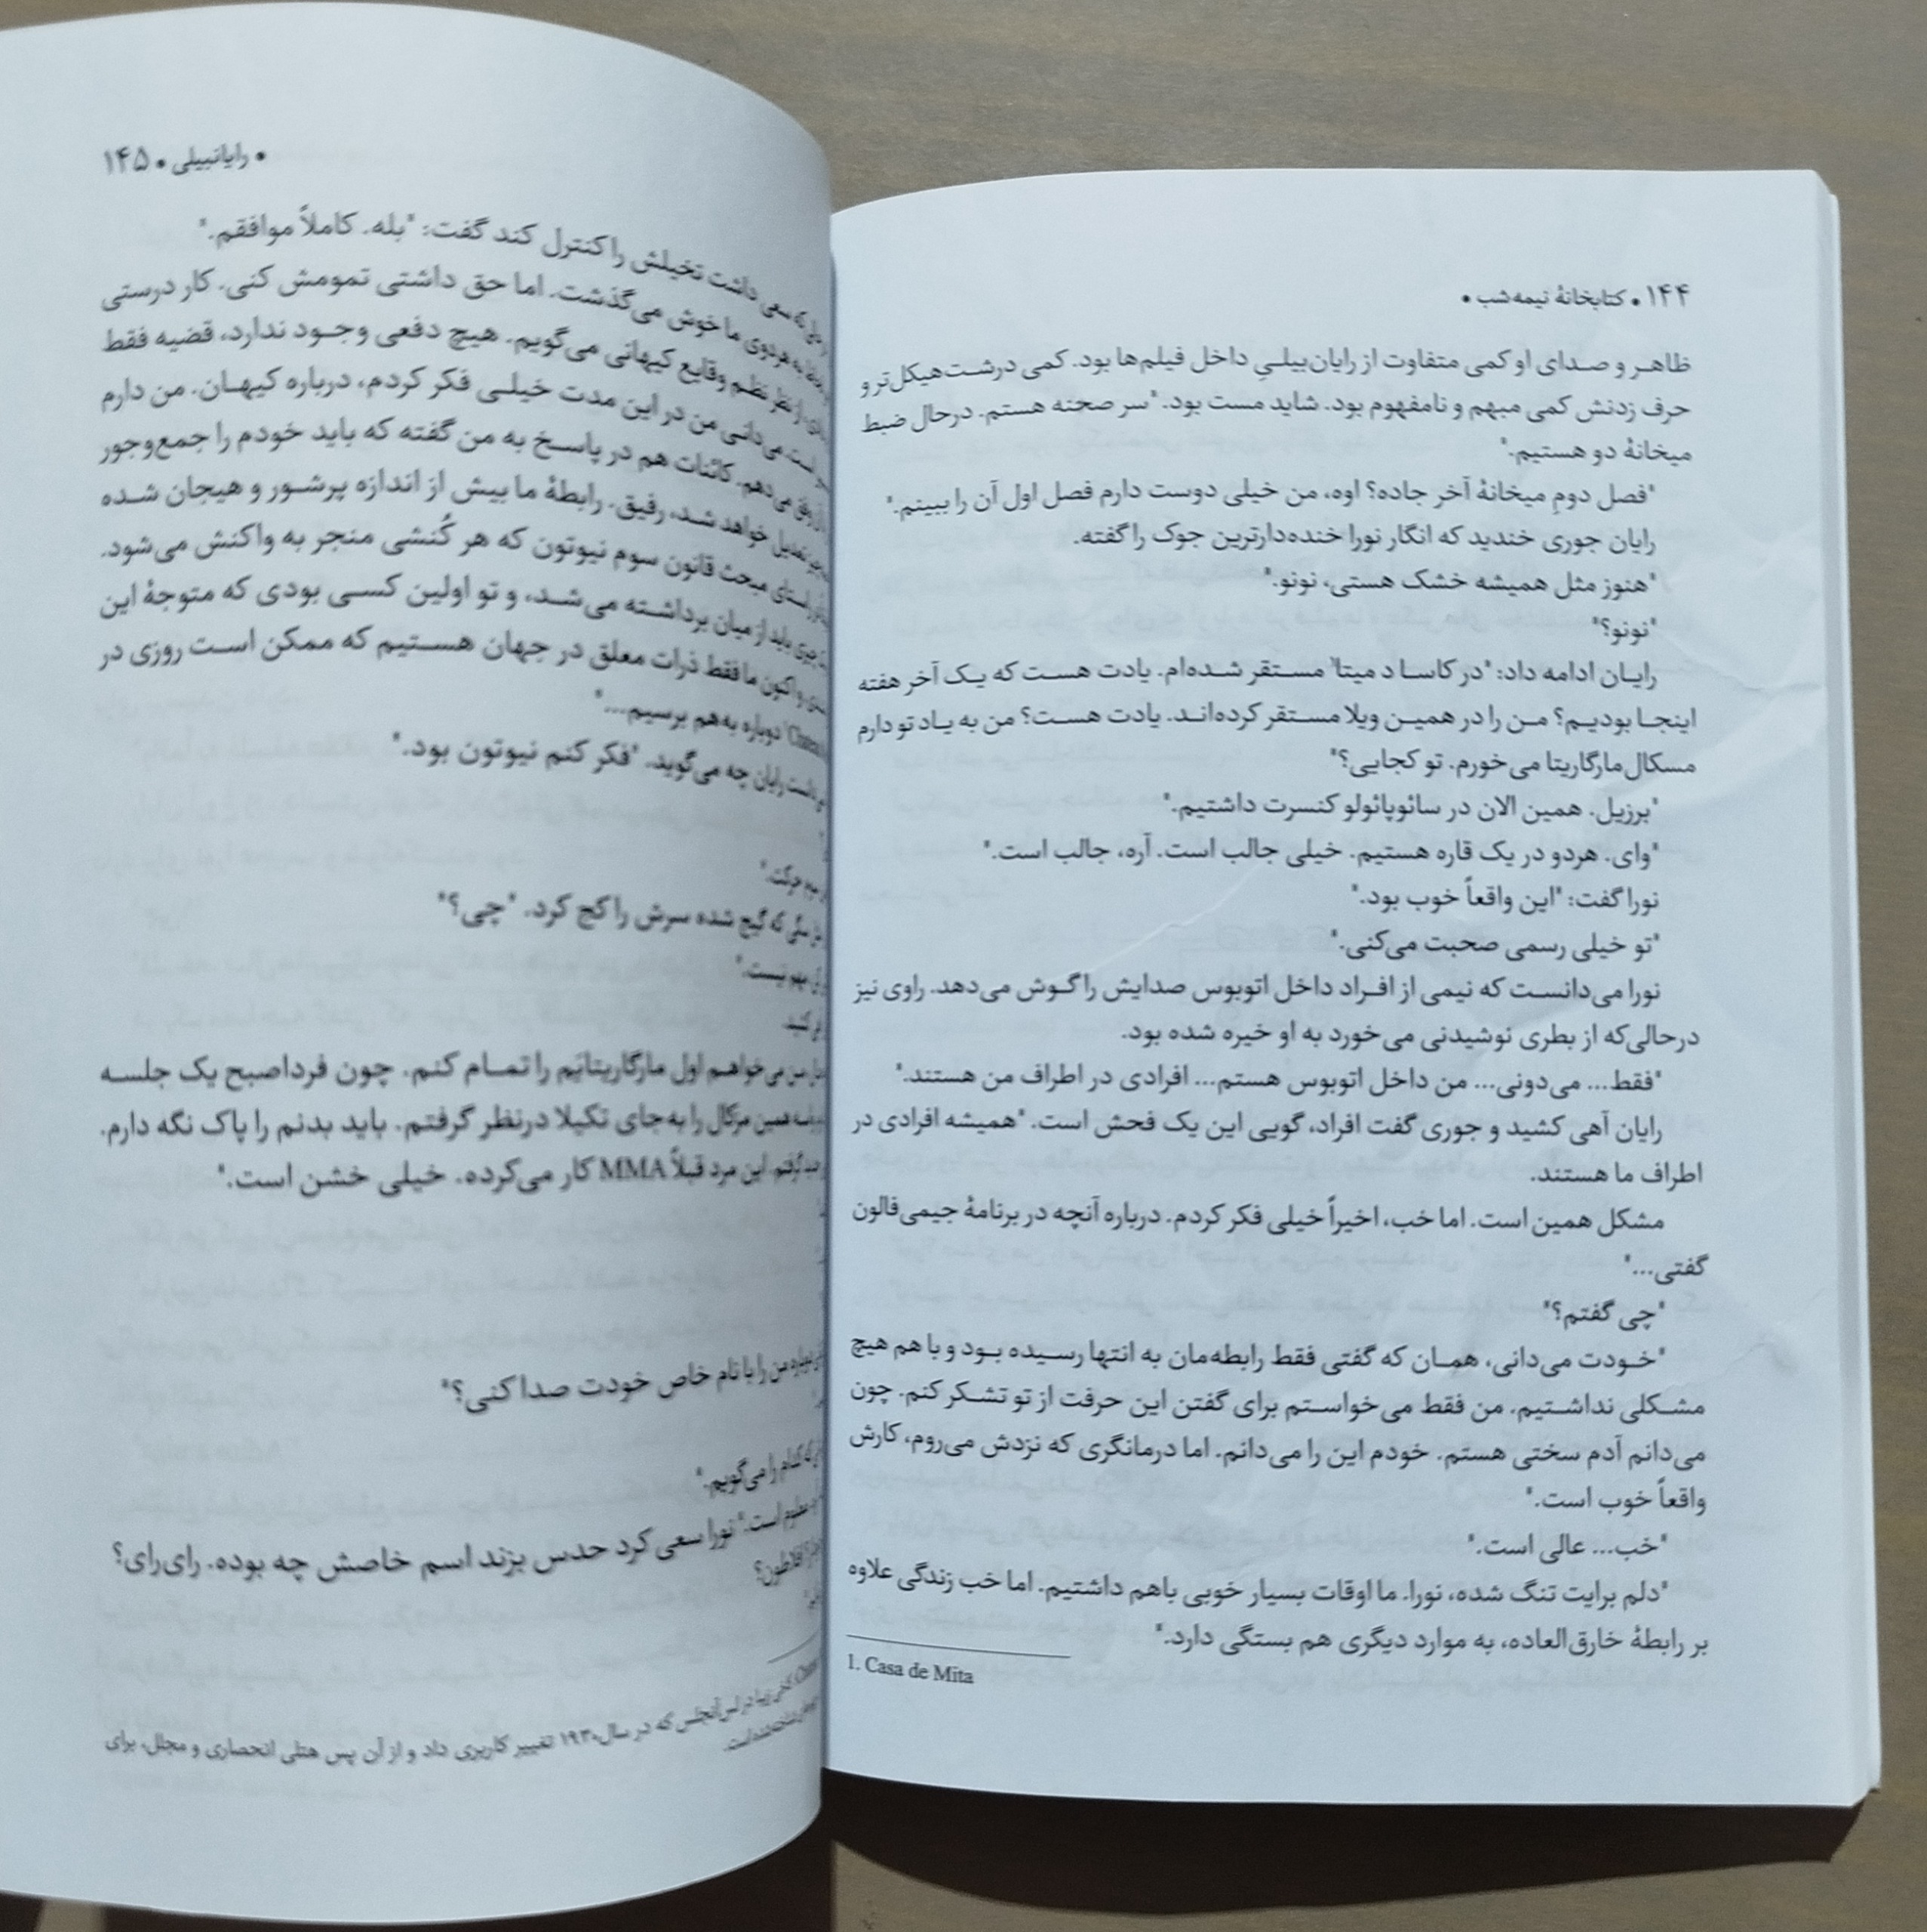 ۱۴۴ • کتابخانهٔ نیمه‌شب •
ظاهر و صدای او کمی متفاوت از رایان‌بیلیِ داخل فیلم‌ها بود. کمی درشت‌هیکل‌تر و
حرف زدنش کمی مبهم و نامفهوم بود. شاید مست بود. "سر صحنه هستم. درحال ضبط
میخانهٔ دو هستیم."
"فصل دومِ میخانهٔ آخر جاده؟ اوه، من خیلی دوست دارم فصل اول آن را ببینم."
رایان جوری خندید که انگار نورا خنده‌دارترین جوک را گفته.
"هنوز مثل همیشه خشک هستی، نونو."
"نونو؟"
رایان ادامه داد: "در کاسا د میتا۱ مستقر شده‌ام. یادت هست که یک آخر هفته
اینجا بودیم؟ من را در همین ویلا مستقر کرده‌اند. یادت هست؟ من به یاد تو دارم
مسکال‌مارگاریتا می‌خورم. تو کجایی؟"
"برزیل. همین الان در سائوپائولو کنسرت داشتیم."
"وای. هردو در یک قاره هستیم. خیلی جالب است. آره، جالب است."
نورا گفت: "این واقعاً خوب بود."
"تو خیلی رسمی صحبت می‌کنی."
نورا می‌دانست که نیمی از افراد داخل اتوبوس صدایش را گوش می‌دهد. راوی نیز
درحالی‌که از بطری نوشیدنی می‌خورد به او خیره شده بود.
"فقط... می‌دونی... من داخل اتوبوس هستم... افرادی در اطراف من هستند."
رایان آهی کشید و جوری گفت افراد، گویی این یک فحش است. "همیشه افرادی در
اطراف ما هستند.
مشکل همین است. اما خب، اخیراً خیلی فکر کردم. درباره آنچه در برنامهٔ جیمی‌فالون
گفتی..."
"چی گفتم؟"
"خودت می‌دانی، همان که گفتی فقط رابطه‌مان به انتها رسیده بود و با هم هیچ
مشکلی نداشتیم. من فقط می‌خواستم برای گفتن این حرفت از تو تشکر کنم. چون
می‌دانم آدم سختی هستم. خودم این را می‌دانم. اما درمانگری که نزدش می‌روم، کارش
واقعاً خوب است."
"خب... عالی است."
"دلم برایت تنگ شده، نورا. ما اوقات بسیار خوبی باهم داشتیم. اما خب زندگی علاوه
بر رابطهٔ خارق‌العاده، به موارد دیگری هم بستگی دارد."
1. Casa de Mita
• رایان‌بیلی • ۱۴۵
که سعی داشت تخیلش را کنترل کند گفت: "بله. کاملاً موافقم."
به هردوی ما خوش می‌گذشت. اما حق داشتی تمومش کنی. کار درستی
از نظر نظم وقایع کیهانی می‌گویم. هیچ دفعی وجود ندارد، قضیه فقط
است می‌دانی من در این مدت خیلی فکر کردم، درباره کیهان. من دارم
می‌دهم. کائنات هم در پاسخ به من گفته که باید خودم را جمع‌وجور
تعدیل خواهد شد، رفیق. رابطهٔ ما بیش از اندازه پرشور و هیجان شده
راستای مبحث قانون سوم نیوتون که هر کُنشی منجر به واکنش می‌شود.
چیزی باید از میان برداشته می‌شد، و تو اولین کسی بودی که متوجهٔ این
و اکنون ما فقط ذرات معلق در جهان هستیم که ممکن است روزی در
دوباره به‌هم برسیم..."
داشت رایان چه می‌گوید. "فکر کنم نیوتون بود."
که گیج شده سرش را کج کرد. "چی؟"
مهم نیست."
من می‌خواهم اول مارگاریتایَم را تمام کنم. چون فرداصبح یک جلسه
همین مزکال را به‌جای تکیلا درنظر گرفتم. باید بدنم را پاک نگه دارم.
گرفتم. این مرد قبلاً MMA کار می‌کرده. خیلی خشن است."
من را با نام خاص خودت صدا کنی؟"
که کدام را می‌گویم."
معلوم است." نورا سعی کرد حدس بزند اسم خاصش چه بوده. رای‌رای؟
افلاطون؟
زیبا در لس‌آنجلس که در سال ۱۹۳۰ تغییر کاربری داد و از آن پس هتلی انحصاری و مجلل، برای
شناخته شده است.